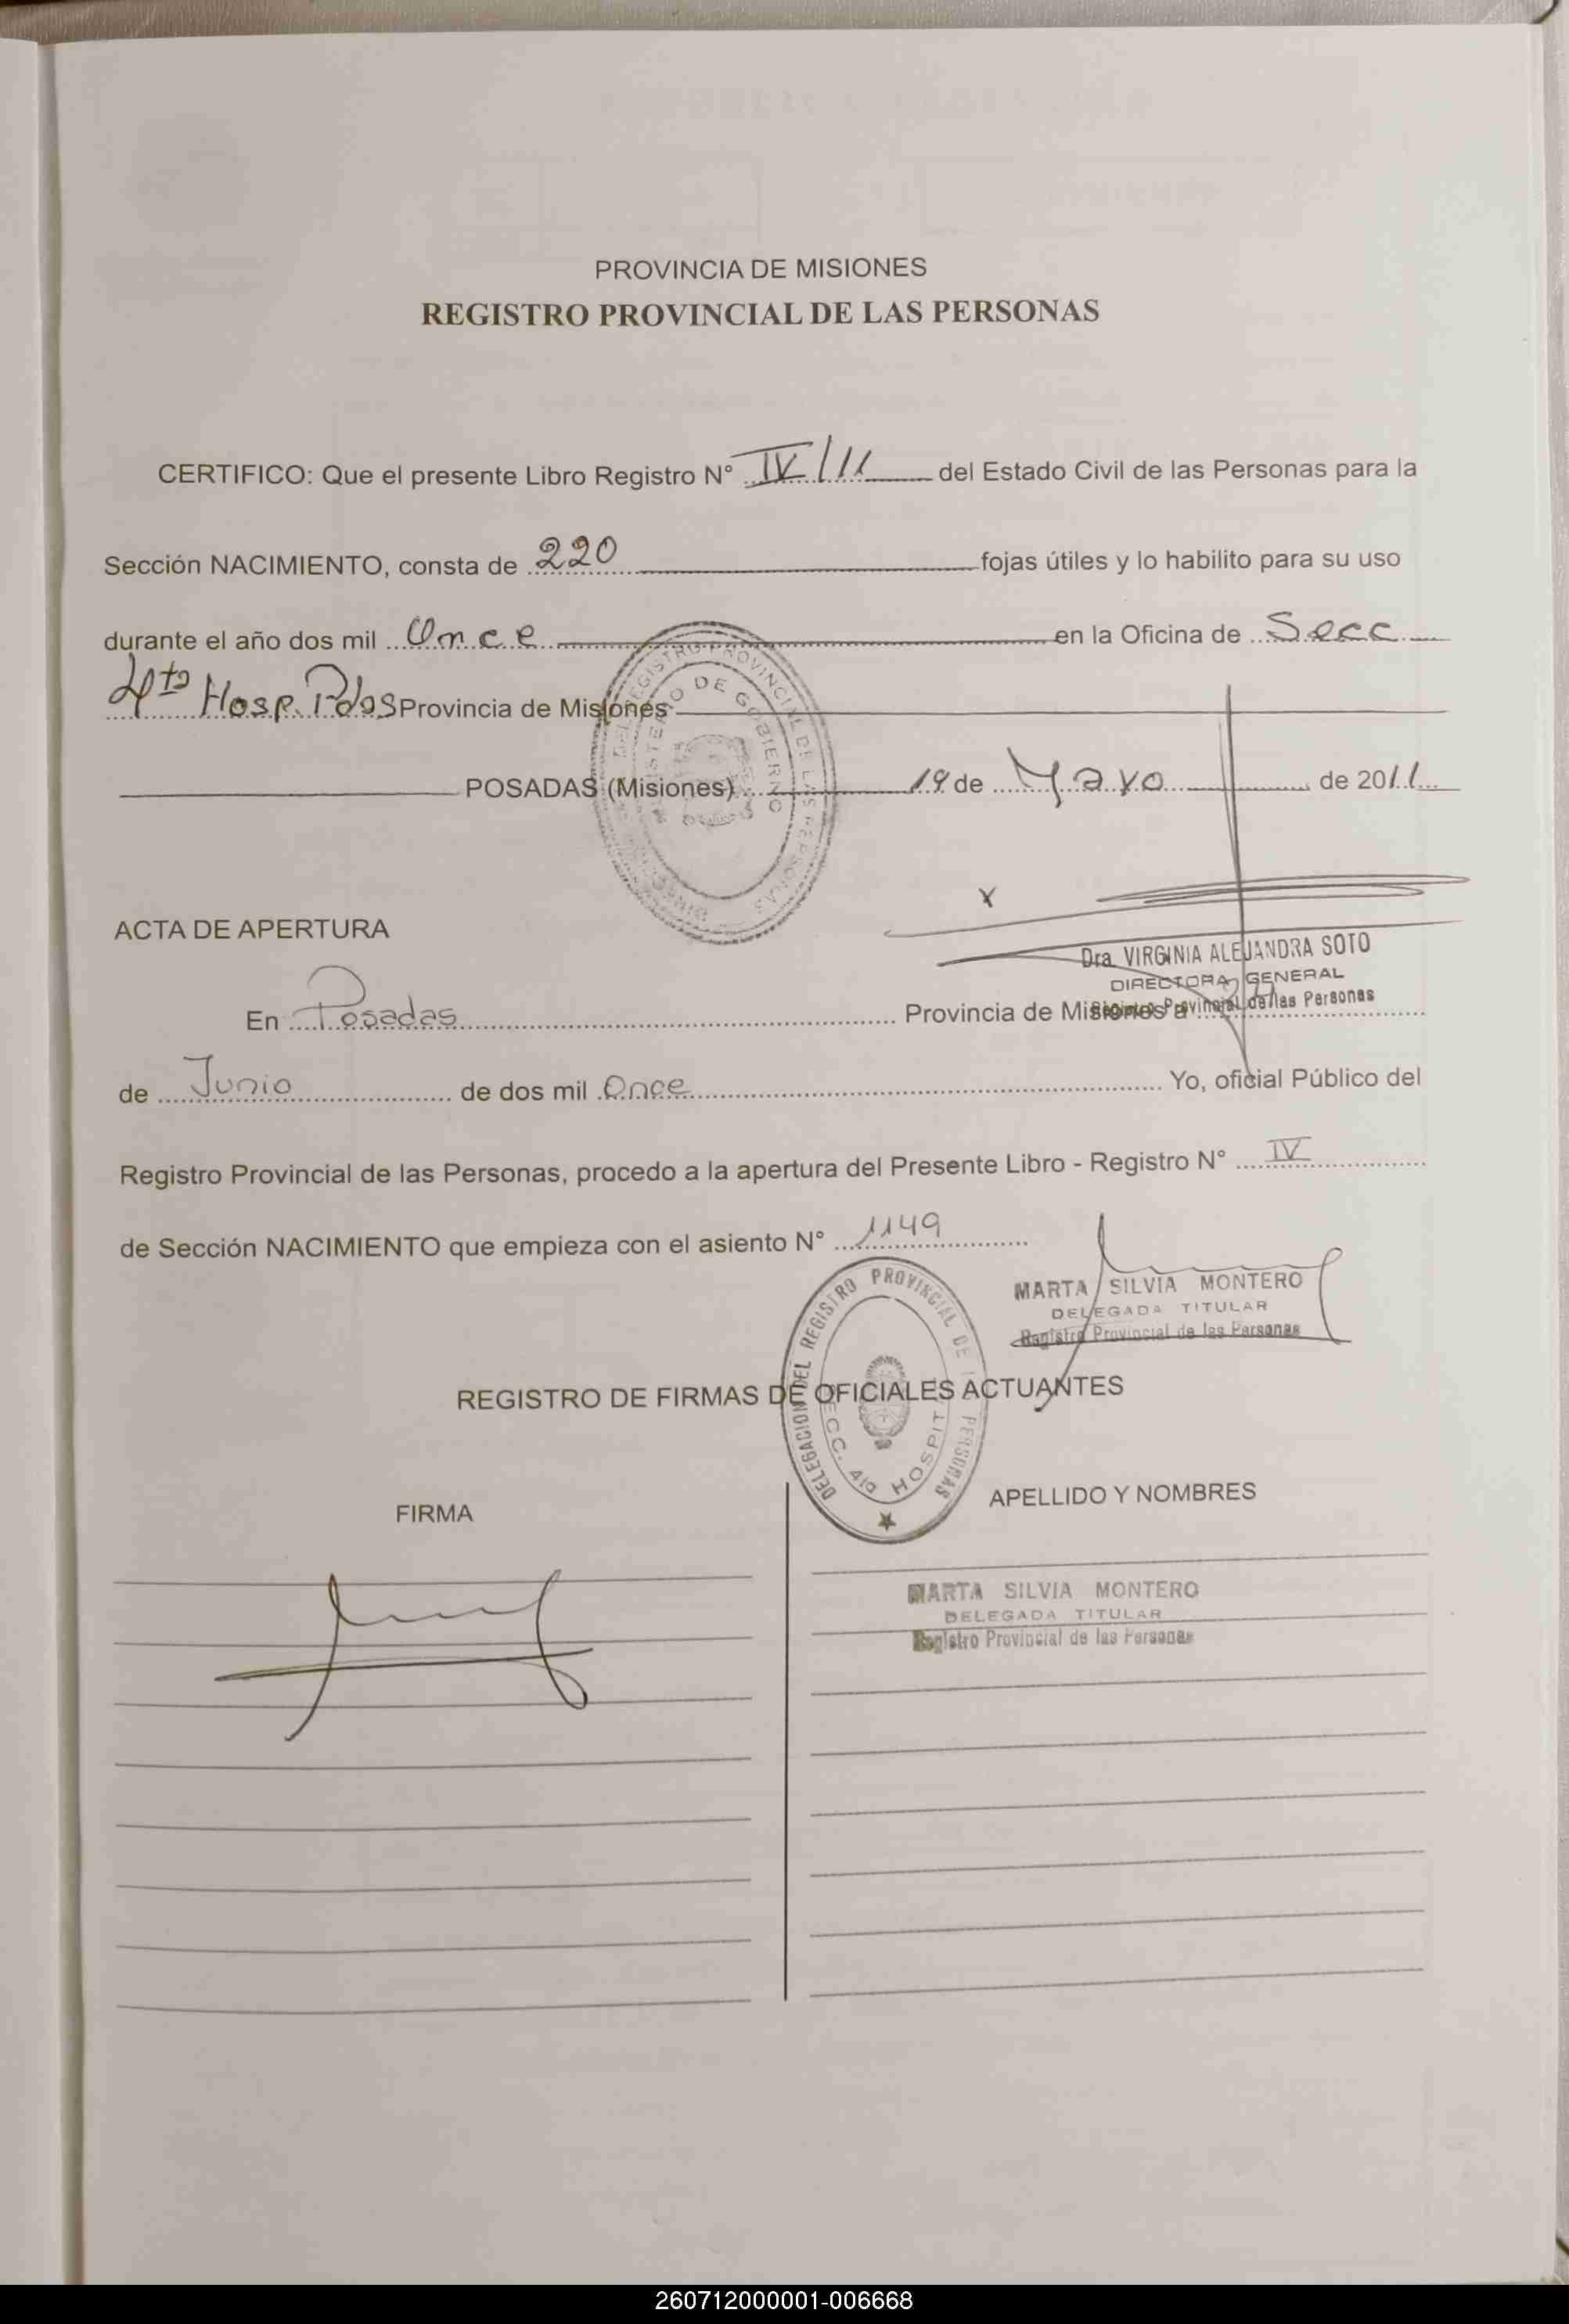 PROVINCIA DE MISIONES
REGISTRO PROVINCIAL DE LAS PERSONAS
CERTIFICO: Que el presente Libro Registro N° IV/11 del Estado Civil de las Personas para la
Sección NACIMIENTO, consta de 220 fojas útiles y lo habilito para su uso
durante el año dos mil Once en la Oficina de Secc
4ta Hosp. Pdas Provincia de Misiones
POSADAS (Misiones) 19 de Mayo de 2011
ACTA DE APERTURA
Dra. VIRGINIA ALEJANDRA SOTO
DIRECTORA GENERAL
Registro Provincial de las Personas
En Posadas Provincia de Misiones a
de Junio de dos mil Once Yo, oficial Público del
Registro Provincial de las Personas, procedo a la apertura del Presente Libro - Registro N° IV
de Sección NACIMIENTO que empieza con el asiento N° 1149
MARTA SILVIA MONTERO
DELEGADA TITULAR
Registro Provincial de las Personas
DELEGACION DEL REGISTRO PROVINCIAL DE PERSONAS
SECC. 4ta HOSPITAL
REGISTRO DE FIRMAS DE OFICIALES ACTUANTES
FIRMA
APELLIDO Y NOMBRES
MARTA SILVIA MONTERO
DELEGADA TITULAR
Registro Provincial de las Personas
260712000001-006668